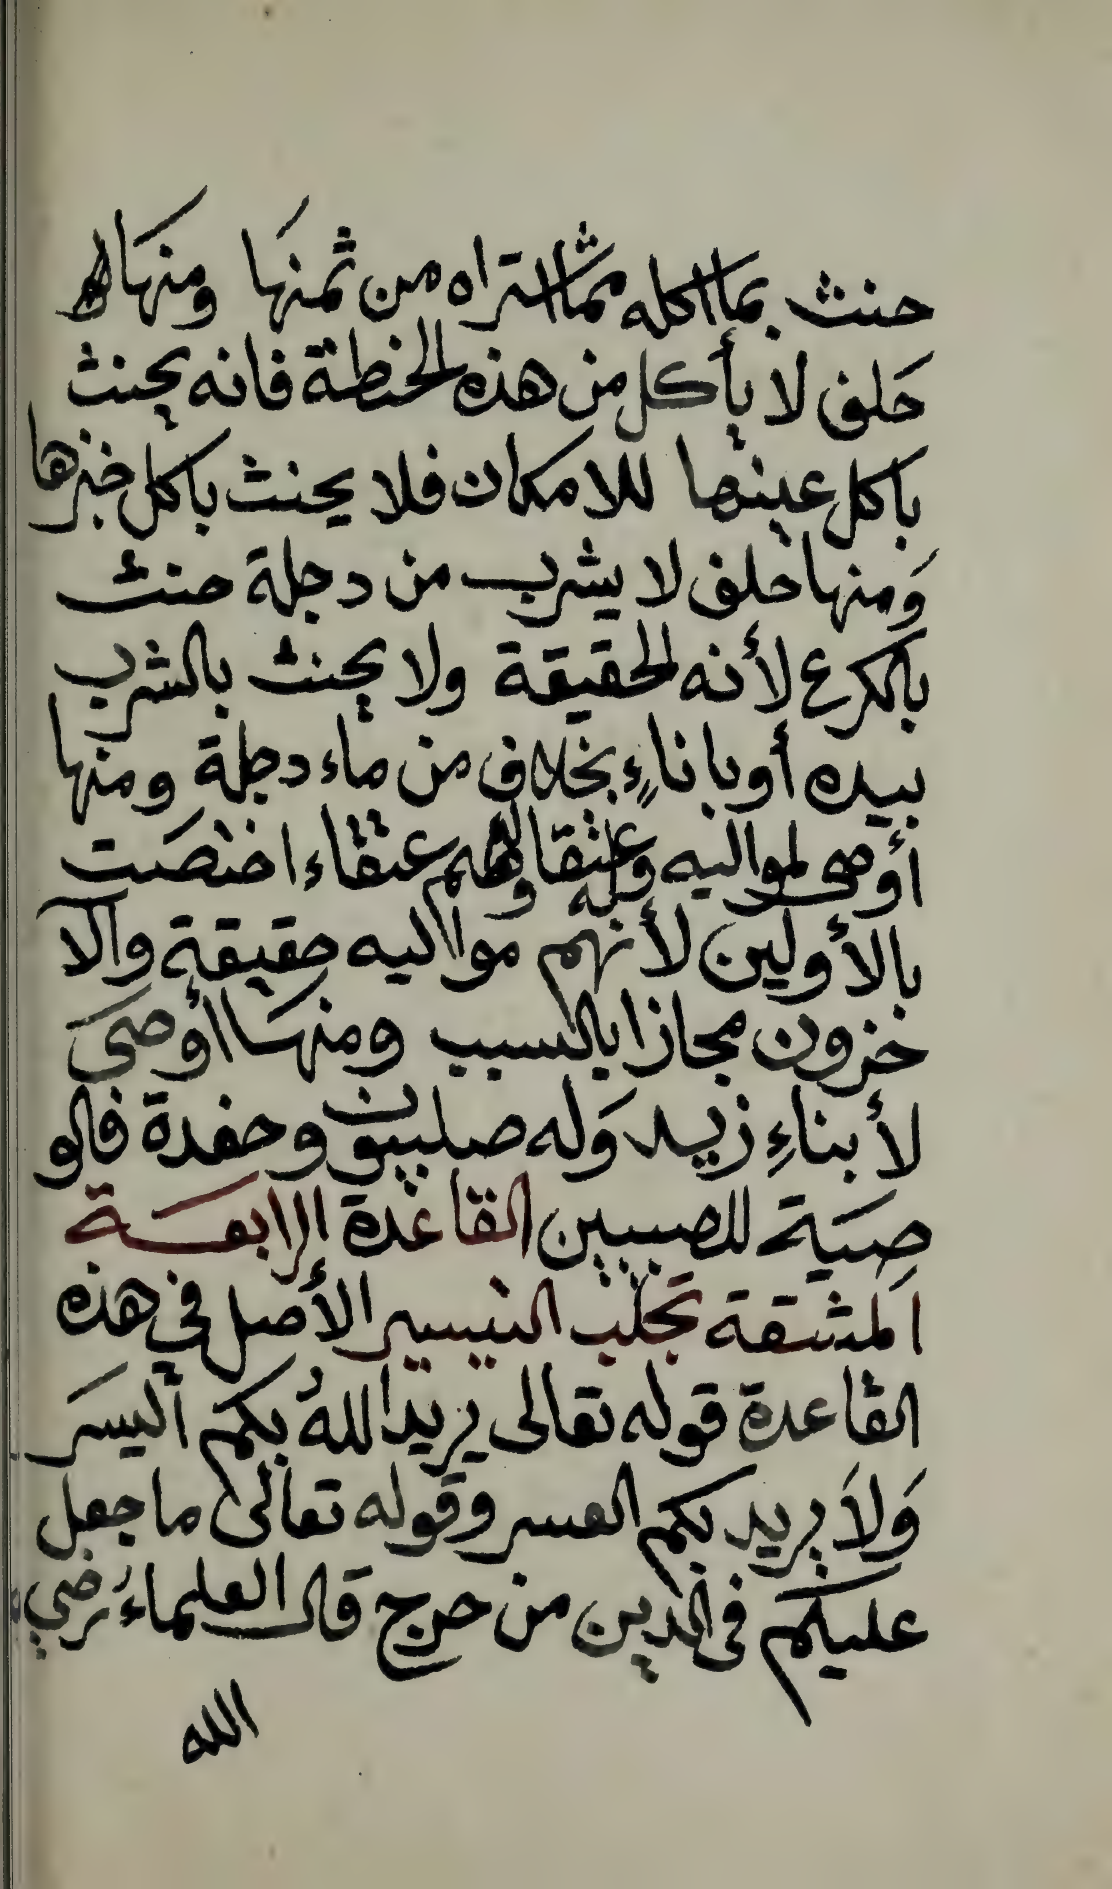 حنث بما اكله مما اشتراه من ثمنها ومنها
حَلف لا يأكل من هذه الحنطة فانه يحنث
باكل عينها للامكان فلا يحنث باكل خبزها
وَمنها حلف لا يشرب من دجلة حنث
بالكرع لأنه الحقيقة ولا يحنث بالشرب
بيده أو باناءٍ بخلاف من ماء دجلة ومنها
أوصى لمواليه وله عتقا ولهم عتقاء اختصَت
بالأولين لأنهم مواليه حقيقة والآ
خرون مجازا بالسبب ومنهَا أوصَى
لأبناءِ زيد وَله صلبيون وحفدة فالو
صِيَة للصبيين القاعدة الرابعَة
المشقة تجلب التيسير الأصل في هذه
القاعدة قوله تعالى يريد اللهُ بكم اليسَر
وَلاَ يريد بكم العسر وقوله تعالى ما جعل
عليكم في الدين من حرج قال العلماءُ رضي
الله